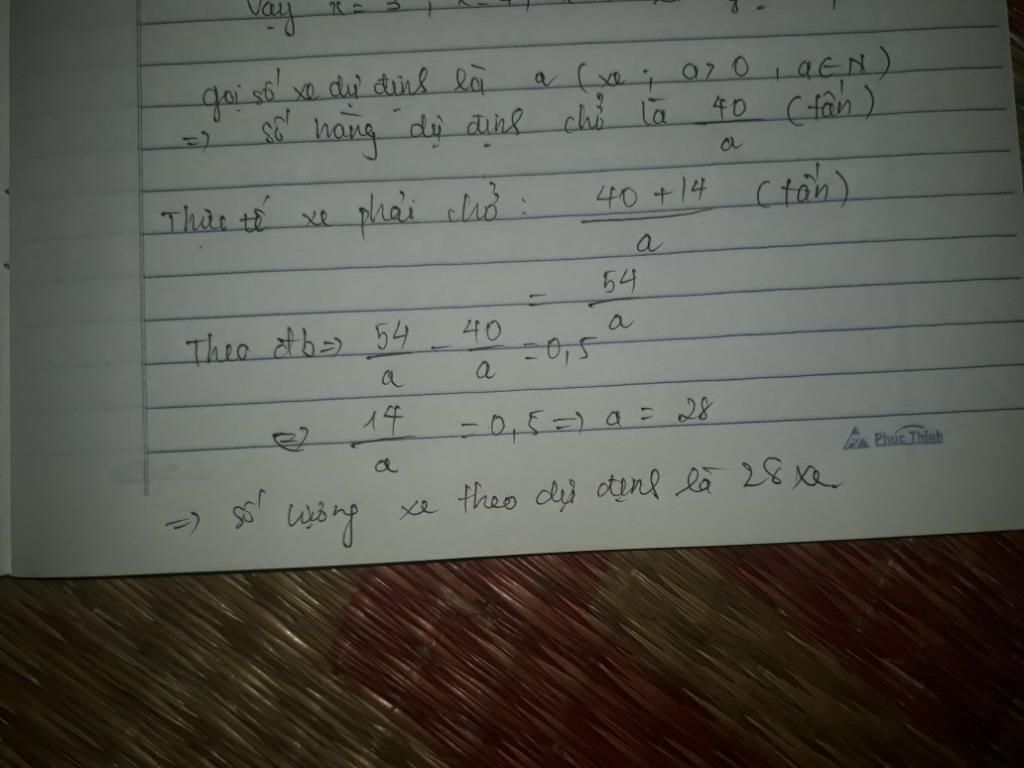 Vậy x = 3
gọi số xe dự định là a (xe ; a > 0 , a ∈ N)
=> số hàng dự định chở là 40/a (tấn)
Thực tế xe phải chở : (40 + 14)/a (tấn)
= 54/a
Theo đb => 54/a - 40/a = 0,5
<=> 14/a = 0,5 => a = 28
Phúc Thịnh
=> số lượng xe theo dự định là 28 xe